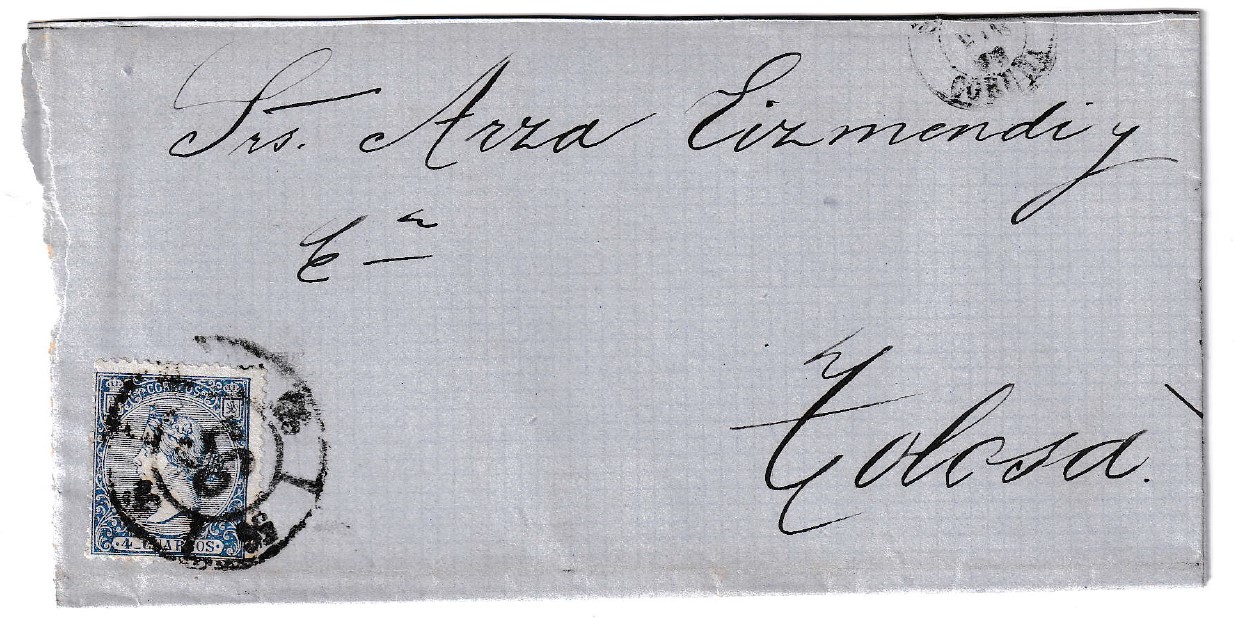 Srs. Arza Eizmendi y
Cª
Tolosa.
4 CUARTOS